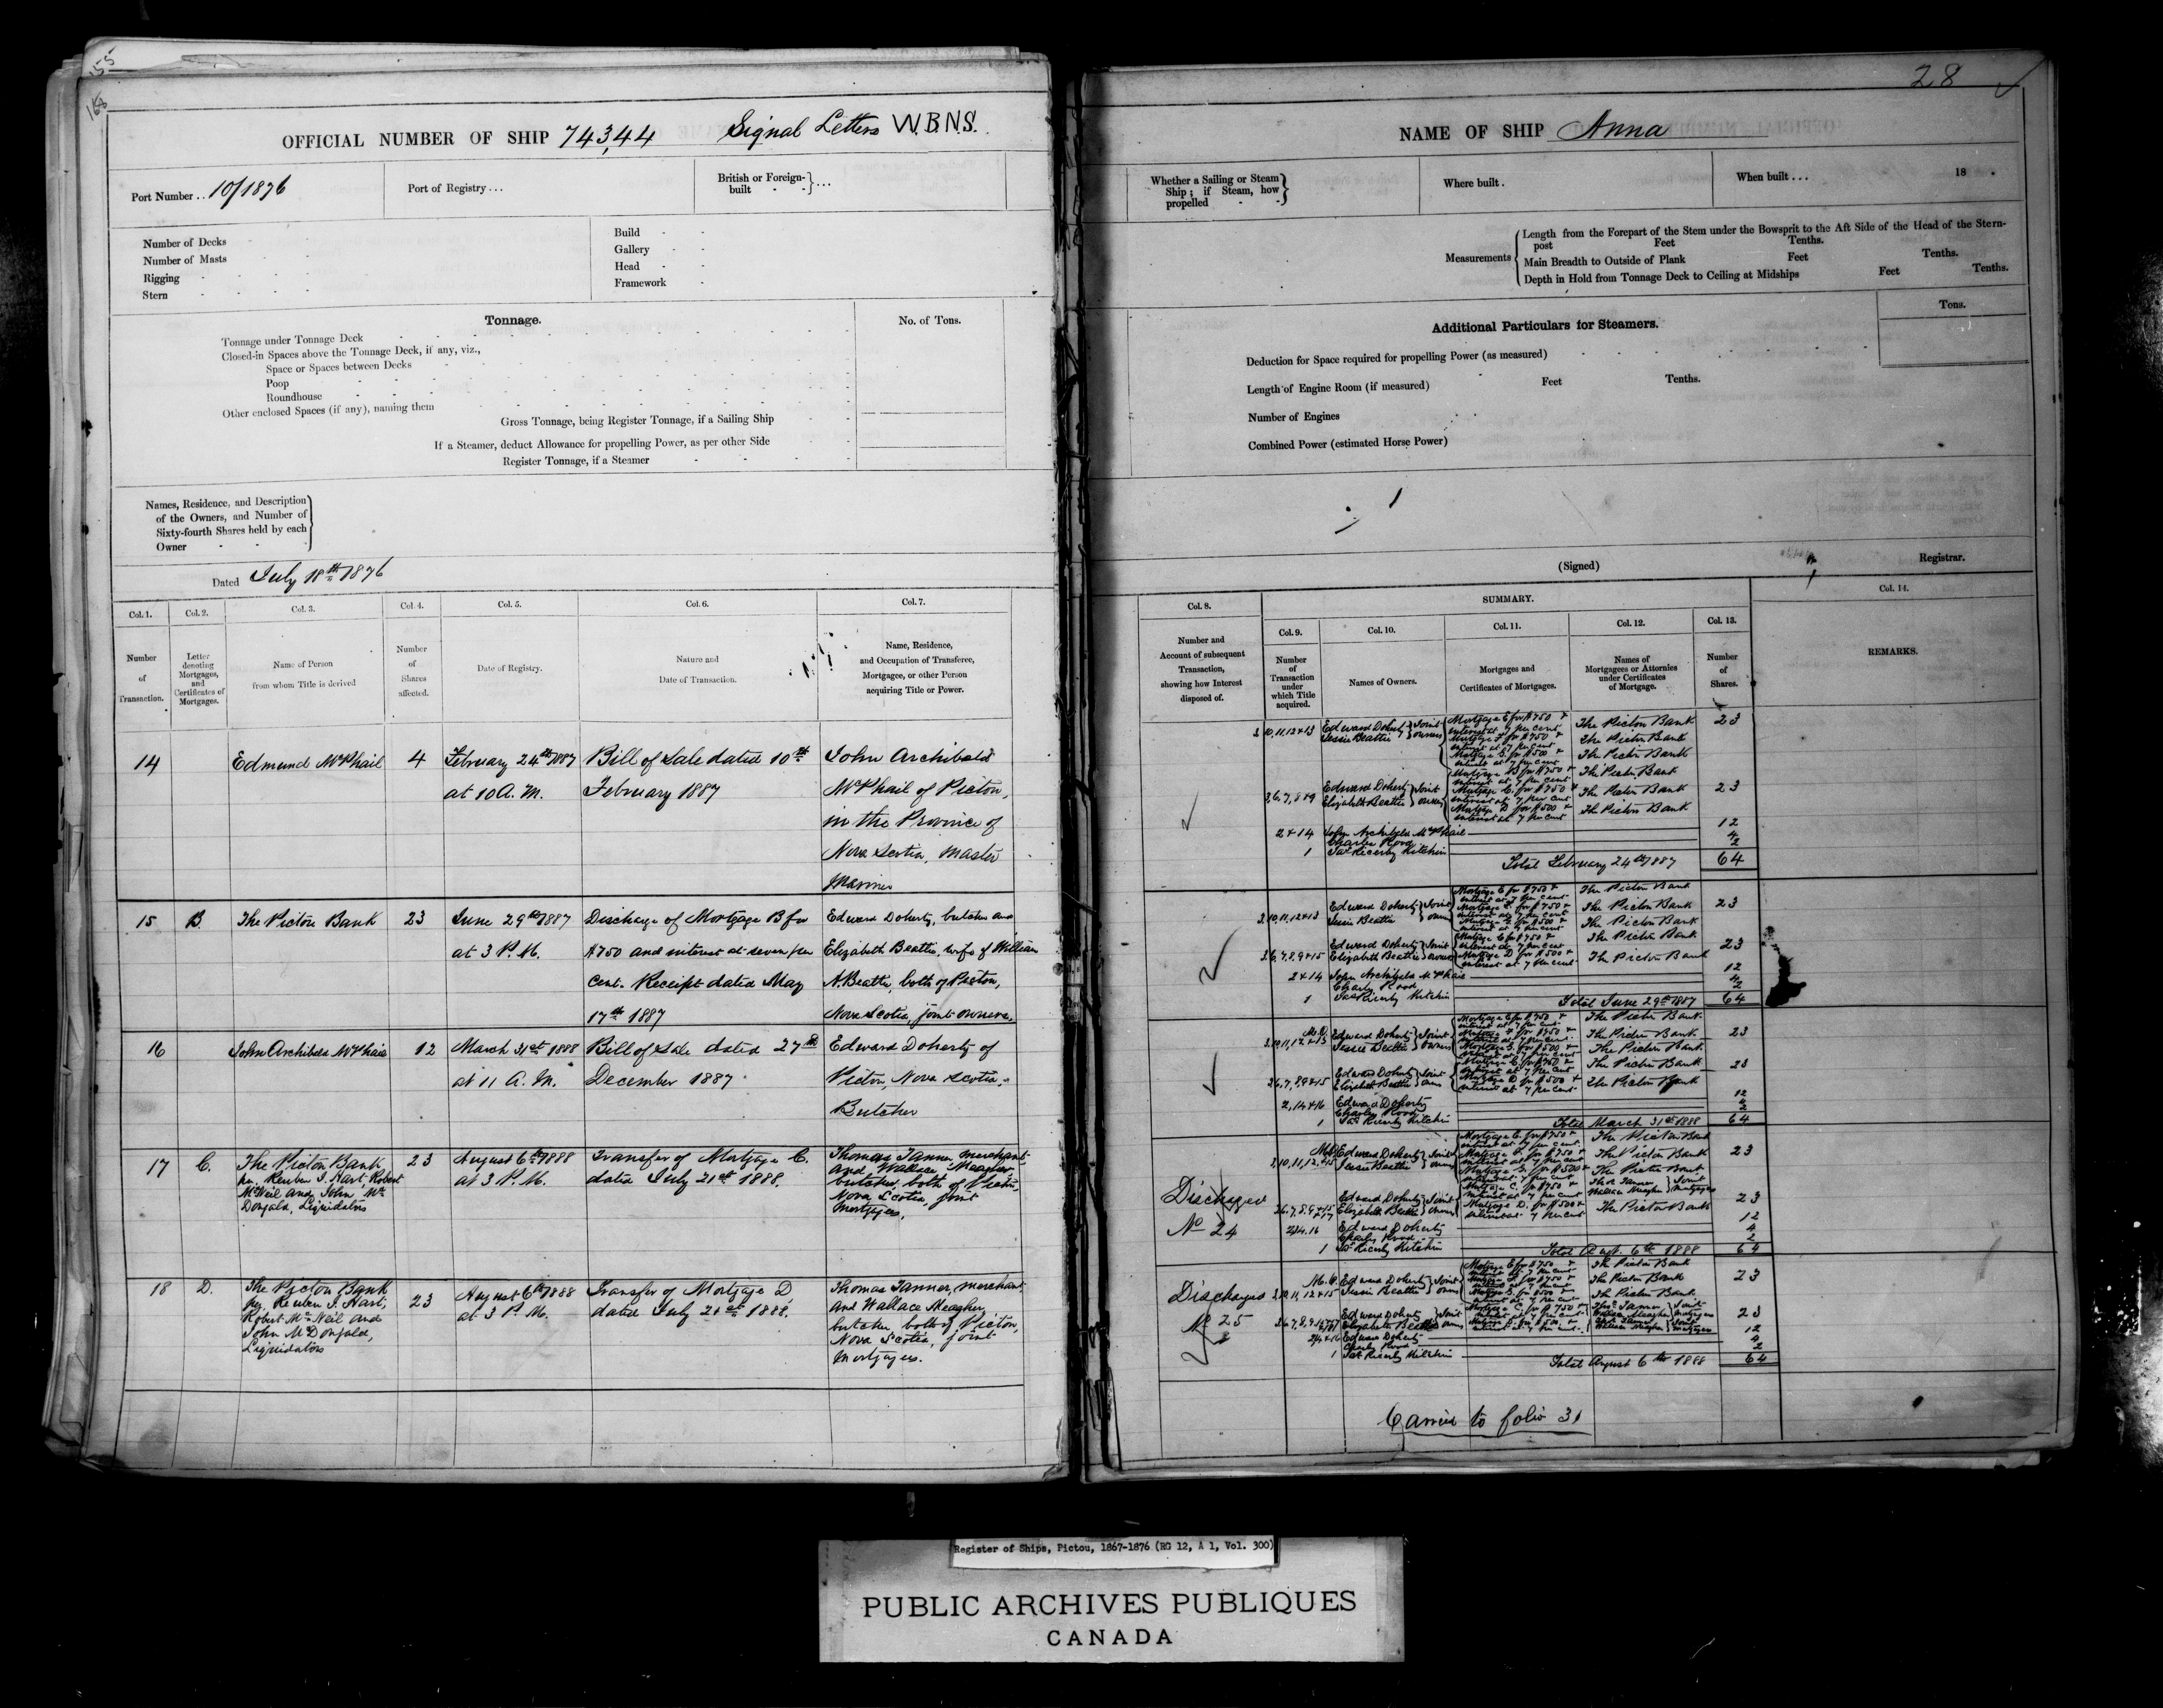 155
156
OFFICIAL NUMBER OF SHIP 74344 Signal Letters W.B.N.S.
Port Number . . 10/1876
Port of Registry . . .
British or Foreign-built . . .
Number of Decks
Number of Masts
Rigging
Stern
Build
Gallery
Head
Framework
Tonnage.
No. of Tons.
Tonnage under Tonnage Deck
Closed-in Spaces above the Tonnage Deck, if any, viz.,
Space or Spaces between Decks
Poop
Roundhouse
Other enclosed Spaces (if any), naming them
Gross Tonnage, being Register Tonnage, if a Sailing Ship
If a Steamer, deduct Allowance for propelling Power, as per other Side
Register Tonnage, if a Steamer
Names, Residence, and Description
of the Owners, and Number of
Sixty-fourth Shares held by each
Owner
Dated July 18th 1876
Col. 1. Col. 2. Col. 3. Col. 4. Col. 5. Col. 6. Col. 7.
Number of Transaction.
Letter denoting Mortgages, and Certificates of Mortgages.
Name of Person from whom Title is derived
Number of Shares affected.
Date of Registry.
Nature and Date of Transaction.
Name, Residence, and Occupation of Transferee, Mortgagee, or other Person acquiring Title or Power.
14 Edmund McPhail 4 February 24th 1887 Bill of Sale dated 10th John Archibald
at 10 A.M. February 1887 McPhail of Pictou,
in the Province of
Nova Scotia, Master
Mariner
15 B The Pictou Bank 23 June 29th 1887 Discharge of Mortgage B for Edward Doherty, butcher and
at 3 P.M. $750 and interest at seven per Elizabeth Beattie, wife of William
cent. Receipt dated May N. Beattie, both of Pictou,
17th 1887 Nova Scotia, joint owners.
16 John Archibald McPhail 12 March 31st 1888 Bill of Sale dated 27th Edward Doherty of
at 11 A.M. December 1887 Pictou, Nova Scotia
Butcher
17 C. The Pictou Bank 23 August 6th 1888 Transfer of Mortgage C. Thomas Tanner merchant
per. Reuben I. Hart, Robert at 3 P.M. dated July 21st 1888. and Wallace Meagher
McNeil and John Mc butcher, both of Pictou,
Donald, Liquidators Nova Scotia, joint
Mortgagees.
18 D. The Pictou Bank 23 August 6th 1888 Transfer of Mortgage D, Thomas Tanner, merchant
per. Reuben I. Hart, at 3 P.M. dated July 21st 1888. and Wallace Meagher,
Robert McNeil and butcher both of Pictou,
John McDonald, Nova Scotia, joint
Liquidators Mortgagees.
28
NAME OF SHIP Anna
Whether a Sailing or Steam
Ship; if Steam, how
propelled
Where built .
When built . . . 18 .
Measurements
Length from the Forepart of the Stem under the Bowsprit to the Aft Side of the Head of the Stern-
post Feet Tenths.
Main Breadth to Outside of Plank Feet Tenths.
Depth in Hold from Tonnage Deck to Ceiling at Midships Feet Tenths.
Tons.
Additional Particulars for Steamers.
Deduction for Space required for propelling Power (as measured)
Length of Engine Room (if measured) Feet Tenths.
Number of Engines
Combined Power (estimated Horse Power)
(Signed) Registrar.
Col. 8. SUMMARY. Col. 14.
Col. 9. Col. 10. Col. 11. Col. 12. Col. 13.
Number and Account of subsequent Transaction, showing how Interest disposed of.
Number of Transaction under which Title acquired.
Names of Owners.
Mortgages and Certificates of Mortgages.
Names of Mortgagees or Attornies under Certificates of Mortgage.
Number of Shares.
REMARKS.
3, 10, 11, 12 + 13 Edward Doherty Joint Mortgage E for $750 + The Pictou Bank 23
Jessie Beattie owners interest at 7 per cent
Mortgage F. for $750 + The Pictou Bank
interest at 7 per cent
Mortgage G. for $500 + The Pictou Bank
interest at 7 per cent
Mortgage B for $750 + The Pictou Bank
interest at 7 per cent
3, 6, 7, 8 + 9 Edward Doherty Joint Mortgage C. for $750 + The Pictou Bank 23
Elizabeth Beattie owners interest at 7 per cent
Mortgage D for $500 + The Pictou Bank
interest at 7 per cent
2 + 14 John Archibald McPhail 12
Charles Rood 4
1 Jas Ricerby Kitchin 2
Total February 24th 1887 64
Mortgage E for $750 + The Pictou Bank
interest at 7 per cent
3, 10, 11, 12 + 13 Edward Doherty Joint Mortgage F. for $750 + The Pictou Bank 23
Jessie Beattie owners interest at 7 per cent
Mortgage G. for $500 + The Pictou Bank
interest at 7 per cent
Mortgage C for $750 + The Pictou Bank
3, 6, 7, 8, 9 + 15 Edward Doherty Joint interest at 7 per cent 23
Elizabeth Beattie owners Mortgage D for $500 + The Pictou Bank
interest at 7 per cent
2 + 14 John Archibald McPhail 12
Charles Rood 4
1 Jas Ricerby Kitchin 2
Total June 29th 1887 64
Mortgage E for $750 + The Pictou Bank
interest at 7 per cent
Edward Doherty Joint Mortgage F for $750 + The Pictou Bank 23
Jessie Beattie owners interest at 7 per cent
Mortgage G. for $500 + The Pictou Bank
interest at 7 per cent
Mortgage C for $750 + The Pictou Bank 23
3, 6, 7, 8, 9 + 15 Edward Doherty Joint interest at 7 per cent
Elizabeth Beattie owners Mortgage D for $500 + The Pictou Bank
interest at 7 per cent
2, 14 + 16 Edward Doherty 12
Charles Rood 4
1 Jas Ricerby Kitchin 2
Total March 31st 1888 64
Mortgage E. for $750 + The Pictou Bank
interest at 7 per cent
Edward Doherty Joint Mortgage F. for $750 + The Pictou Bank 23
Jessie Beattie owners interest at 7 per cent
Mortgage G. for $500 + The Pictou Bank
interest at 7 per cent
Mortgage C. for $750 + Thos Tanner Joint
Discharged interest at 7 per cent Wallace Meagher Mortgagees
No 24 Edward Doherty Joint Mortgage D. for $500 + The Pictou Bank 23
Elizabeth Beattie owners interest at 7 per cent
2, 14, 16 Edward Doherty 12
Charles Rood 4
1 Jas Ricerby Kitchin 2
Total Augt. 6th 1888 64
Mortgage E for $750 + The Pictou Bank
interest at 7 per cent
Discharged Edward Doherty Joint Mortgage F. for $750 + The Pictou Bank 23
No 25 Jessie Beattie owners interest at 7 per cent
Mortgage G. for $500 + The Pictou Bank
Edward Doherty Joint Mortgage C. for $750 + Thos Tanner Joint 23
Elizabeth Beattie owners interest at 7 per cent Wallace Meagher Mortgagees
2, 14 + 16 Edward Doherty 12
Charles Rood 4
1 Jas Ricerby Kitchin 2
Total August 6th 1888 64
Carried to folio 31
Register of Ships, Pictou, 1867-1876 (RG 12, A 1, Vol. 300)
PUBLIC ARCHIVES PUBLIQUES
CANADA